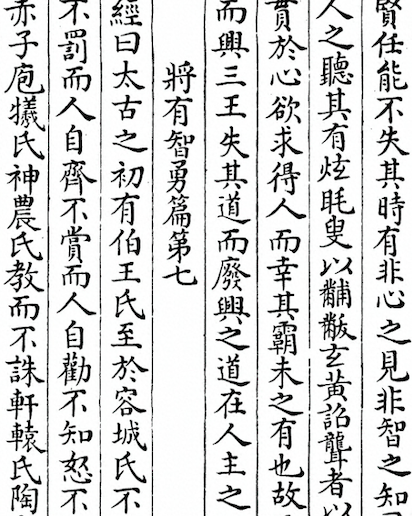 賢任能不失其時有非心之見非智之知
人之聽其有炫眊叟以黼黻玄黃詔聾者以
貫於心欲求得人而幸其霸未之有也故
而興三王失其道而廢興之道在人主之
將有智勇篇第七
經曰太古之初有伯王氏至於容城氏不
不罰而人自齊不賞而人自勸不知怒不
赤子庖犧氏神農氏教而不誅軒轅氏陶